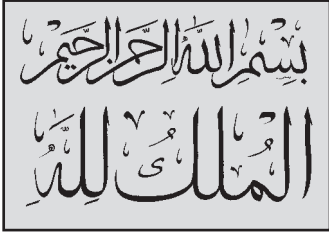 بِسْمِ اللهِ الرَّحْمٰنِ الرَّحِيْمِ
الْمُلْكُ لِلّٰهِ